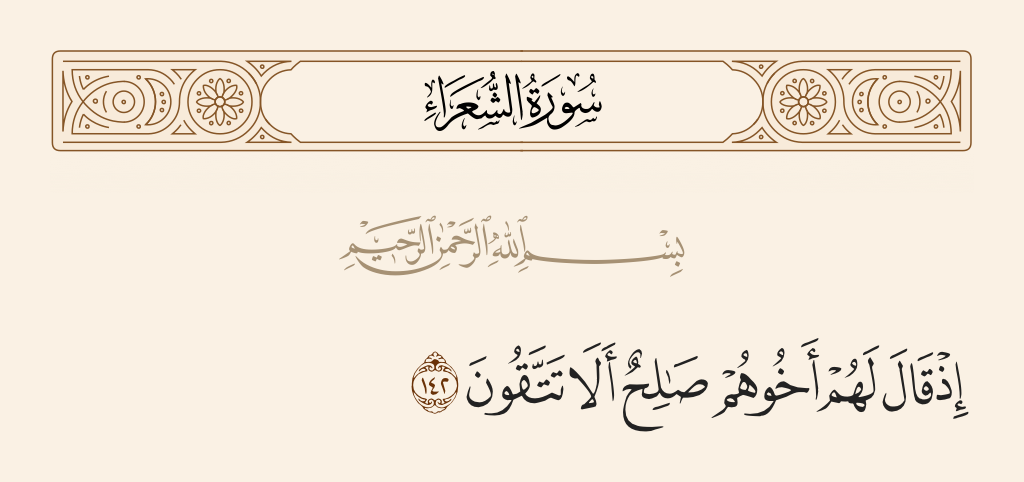 سُورَةُ الشُّعَرَاءِ
بِسْمِ ٱللَّهِ ٱلرَّحْمَٰنِ ٱلرَّحِيمِ
إِذْ قَالَ لَهُمْ أَخُوهُمْ صَٰلِحٌ أَلَا تَتَّقُونَ ١٤٢